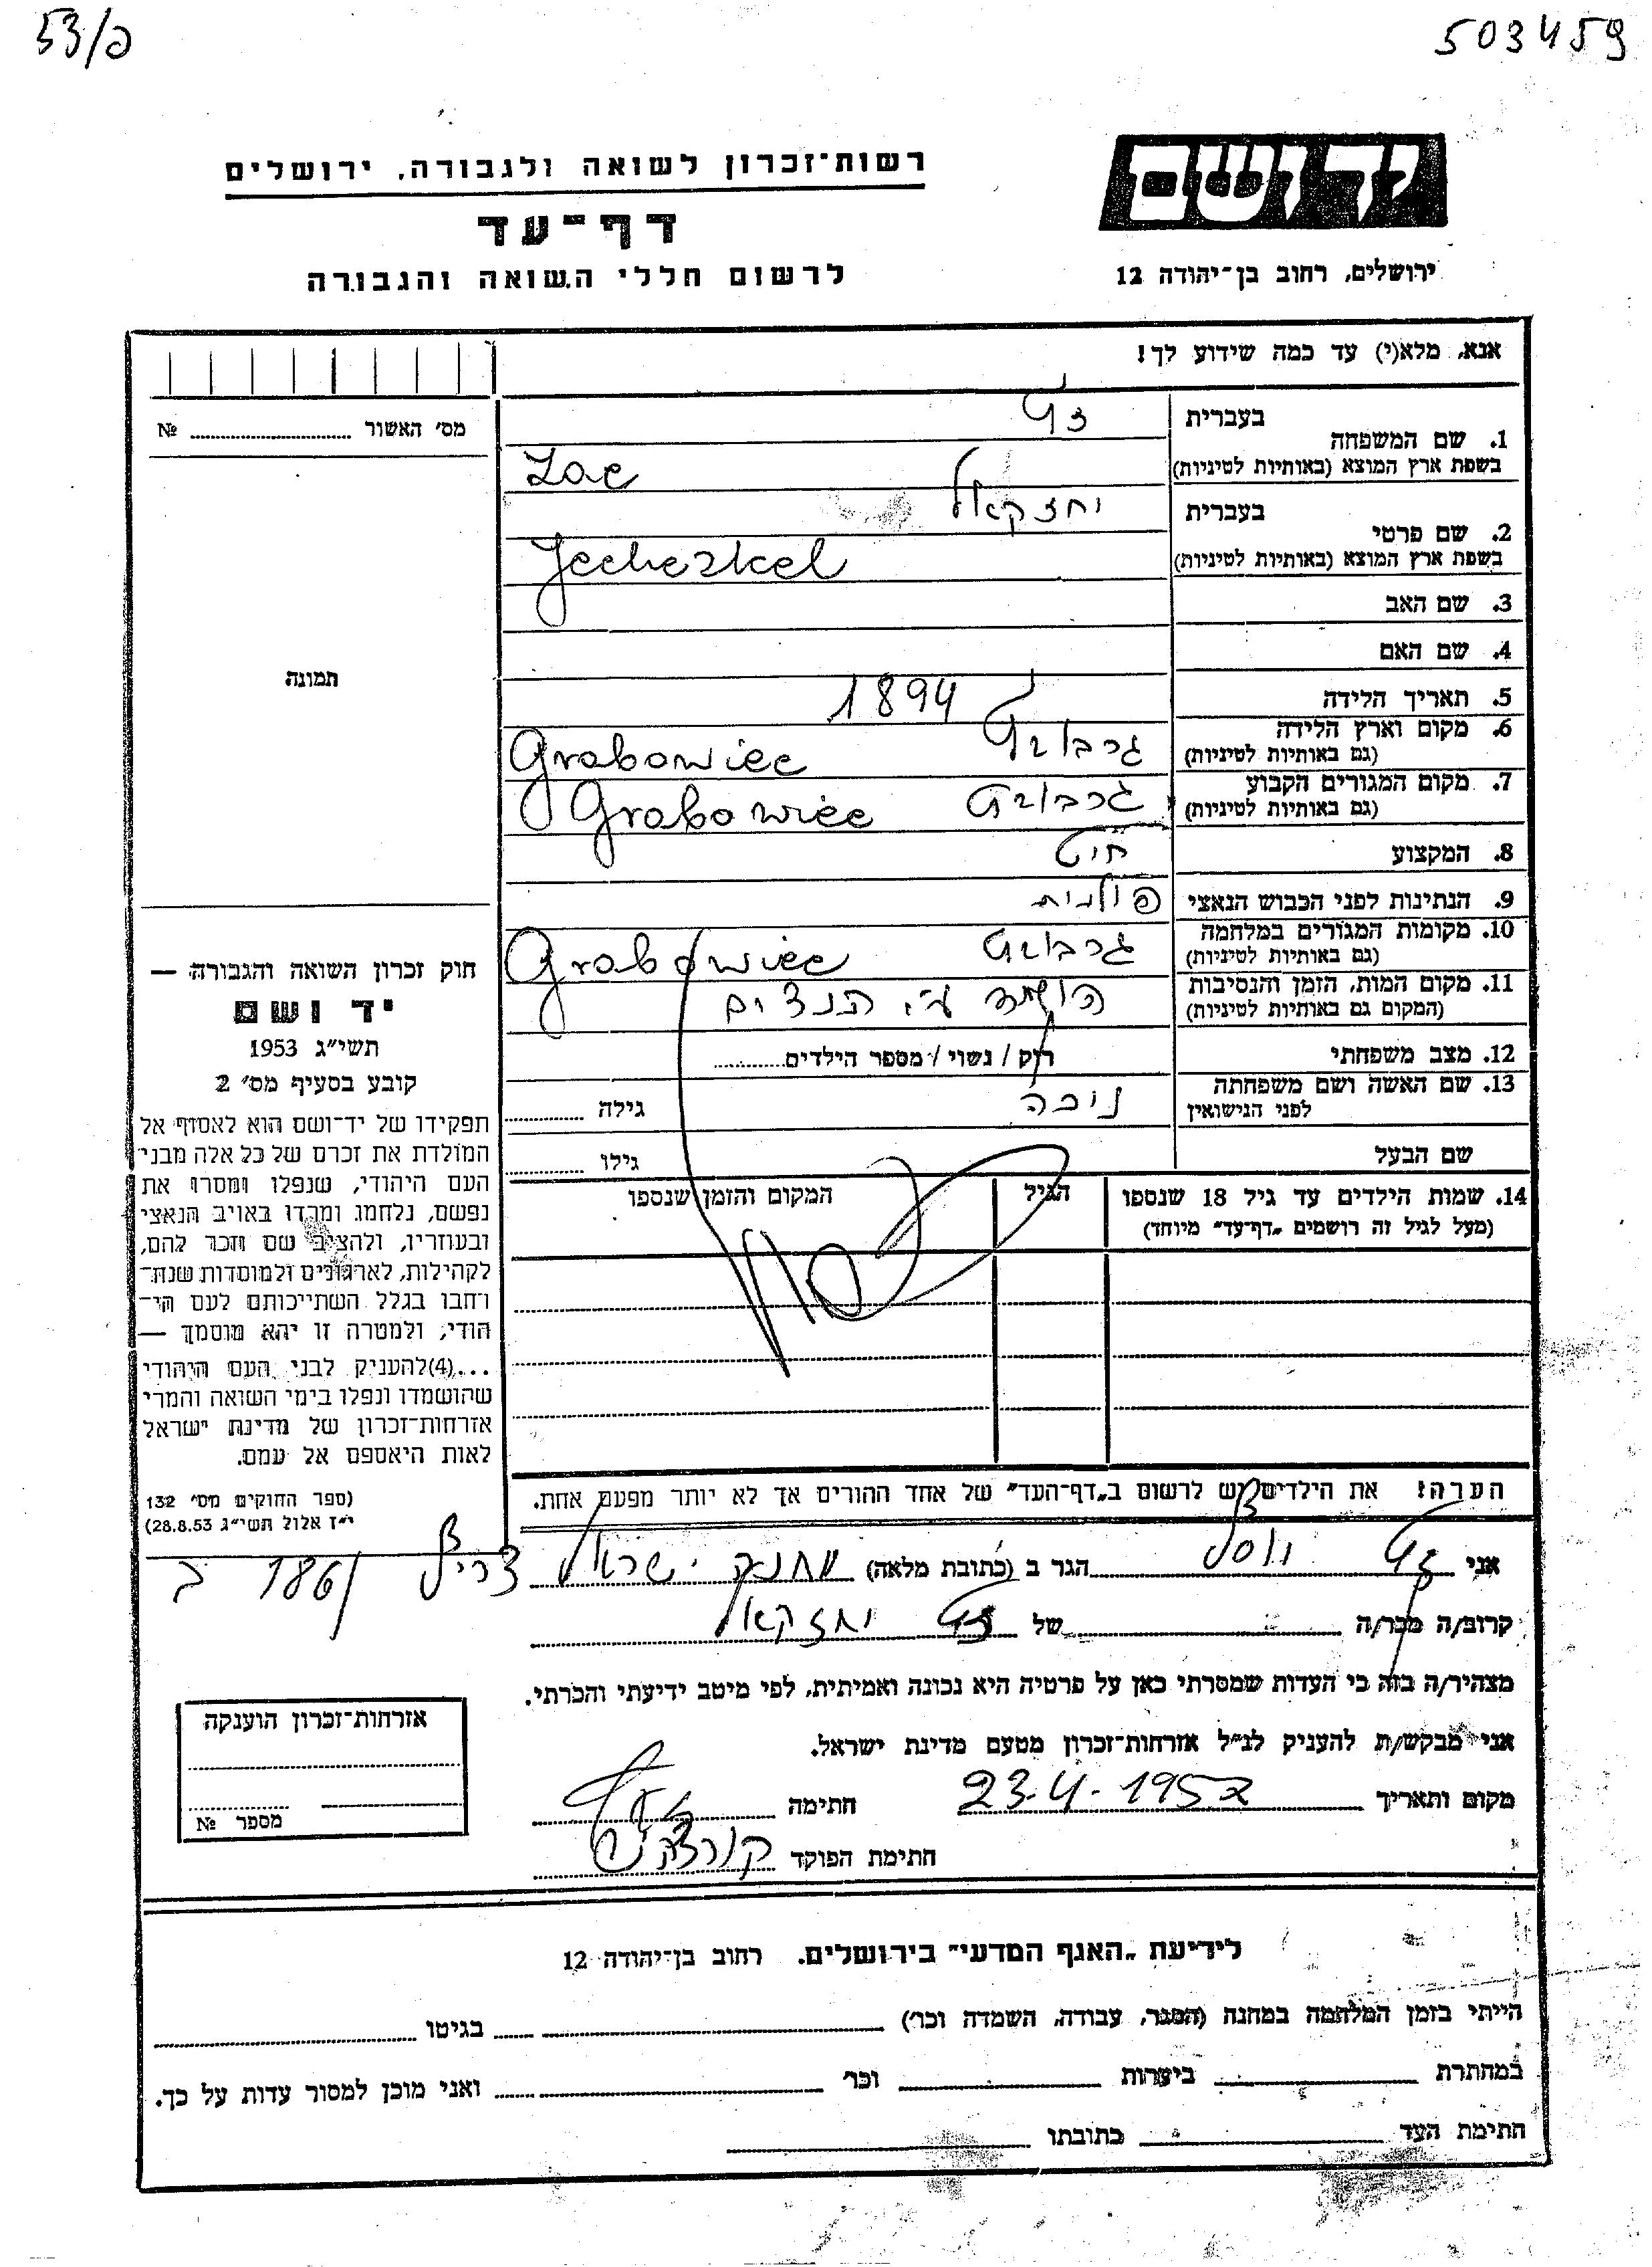 53/פ
503459
יד ושם
רשות־זכרון לשואה ולגבורה, ירושלים
דף־עד
לרשום חללי השואה והגבורה
ירושלים, רחוב בן־יהודה 12
אנא, מלא(י) עד כמה שידוע לך!
מס׳ האשור № 
1. שם המשפחה
בעברית
בשפת ארץ המוצא (באותיות לטיניות) Zac
2. שם פרטי
בעברית יחזקאל
בשפת ארץ המוצא (באותיות לטיניות) Jecheskel
3. שם האב
4. שם האם
תמונה
5. תאריך הלידה 1894
6. מקום וארץ הלידה
(גם באותיות לטיניות) Grabowiec
7. מקום המגורים הקבוע
(גם באותיות לטיניות) Grabowiec
8. המקצוע חיט
9. הנתינות לפני הכבוש הנאצי פולנית
10. מקומות המגורים במלחמה
(גם באותיות לטיניות) Grabowiec
11. מקום המות, הזמן והנסיבות
(המקום גם באותיות לטיניות) הושמד ע״י הנצים
12. מצב משפחתי רוק / נשוי / מספר הילדים
13. שם האשה ושם משפחתה
לפני הנישואין גילה
שם הבעל גילו
14. שמות הילדים עד גיל 18 שנספו
(מעל לגיל זה רושמים „דף־עד״ מיוחד)
הגיל
המקום והזמן שנספו
חוק זכרון השואה והגבורה —
יד ושם
תשי״ג 1953
קובע בסעיף מס׳ 2
תפקידו של יד־ושם הוא לאסוף אל
המולדת את זכרם של כל אלה מבני
העם היהודי, שנפלו ומסרו את
נפשם, נלחמו ומרדו באויב הנאצי
ובעוזריו, ולהציב שם וזכר להם,
לקהילות, לארגונים ולמוסדות שנח־
רחבו בגלל השתייכותם לעם הי־
הודי, ולמטרה זו יהא מוסמך —
...(4)להעניק לבני העם היהודי
שהושמדו ונפלו בימי השואה והמרי
אזרחות־זכרון של מדינת ישראל
לאות היאספם אל עמם.
(ספר החוקים מס׳ 132
י״ז אלול תשי״ג 28.8.53)
הערה! את הילדים יש לרשום ב„דף־העד״ של אחד ההורים אך לא יותר מפעם אחת.
אני הגר ב (כתובת מלאה) מחנה ישראל צריף 186/ ב
קרוב/ה מכר/ה של יחזקאל
מצהיר/ה בזה כי העדות שמסרתי כאן על פרטיה היא נכונה ואמיתית, לפי מיטב ידיעתי והכרתי.
אני מבקש/ת להעניק לנ״ל אזרחות־זכרון מטעם מדינת ישראל.
מקום ותאריך 23.4.1957 חתימה
חתימת הפוקד
אזרחות־זכרון הוענקה
מספר №
לידיעת „האגף המדעי״ בירושלים, רחוב בן־יהודה 12
הייתי בזמן המלחמה במחנה (הסגר, עבודה, השמדה וכו׳) בגיטו
במחתרת ביערות וכו׳ ואני מוכן למסור עדות על כך.
חתימת העד כתובתו